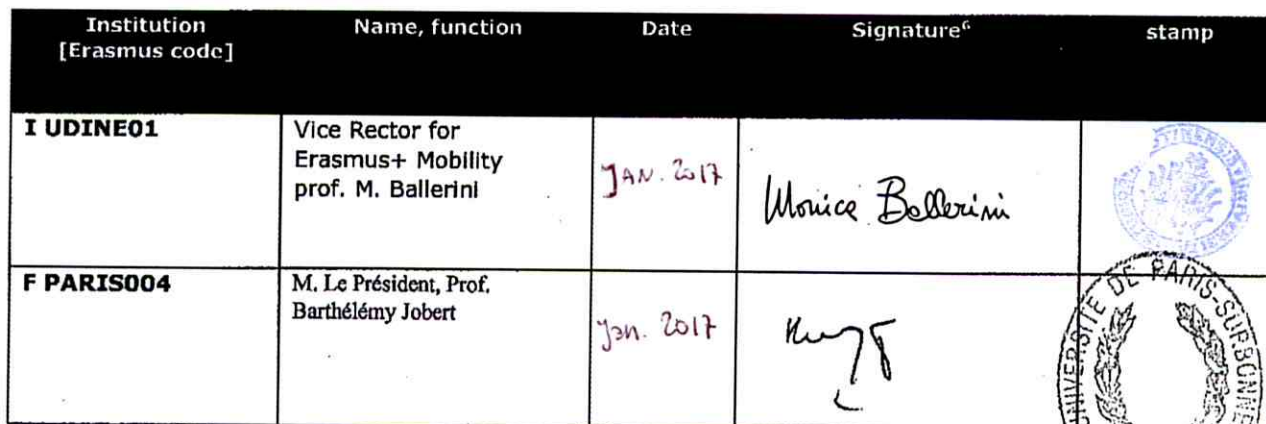 Institution
[Erasmus code]
Name, function
Date
Signature⁶
stamp
I UDINE01
Vice Rector for
Erasmus+ Mobility
prof. M. Ballerini
JAN. 2017
Monica Ballerini
F PARIS004
M. Le Président, Prof.
Barthélémy Jobert
Jan. 2017
UNIVERSITE DE PARIS-SORBONNE